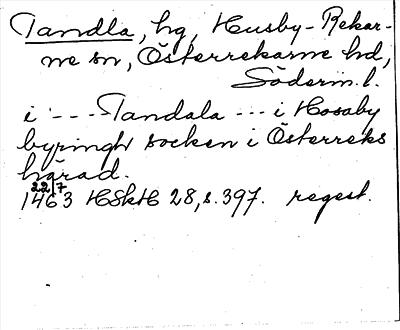 Tandla, hg, Husby-Rekar-
ne sn, Österrekarne hd,
Söderm.l.
i ---Tandala --- i Hosaby
bypingh socken i Österreks
härad.
22/7
1463 HSkH 28, s. 397. regest.